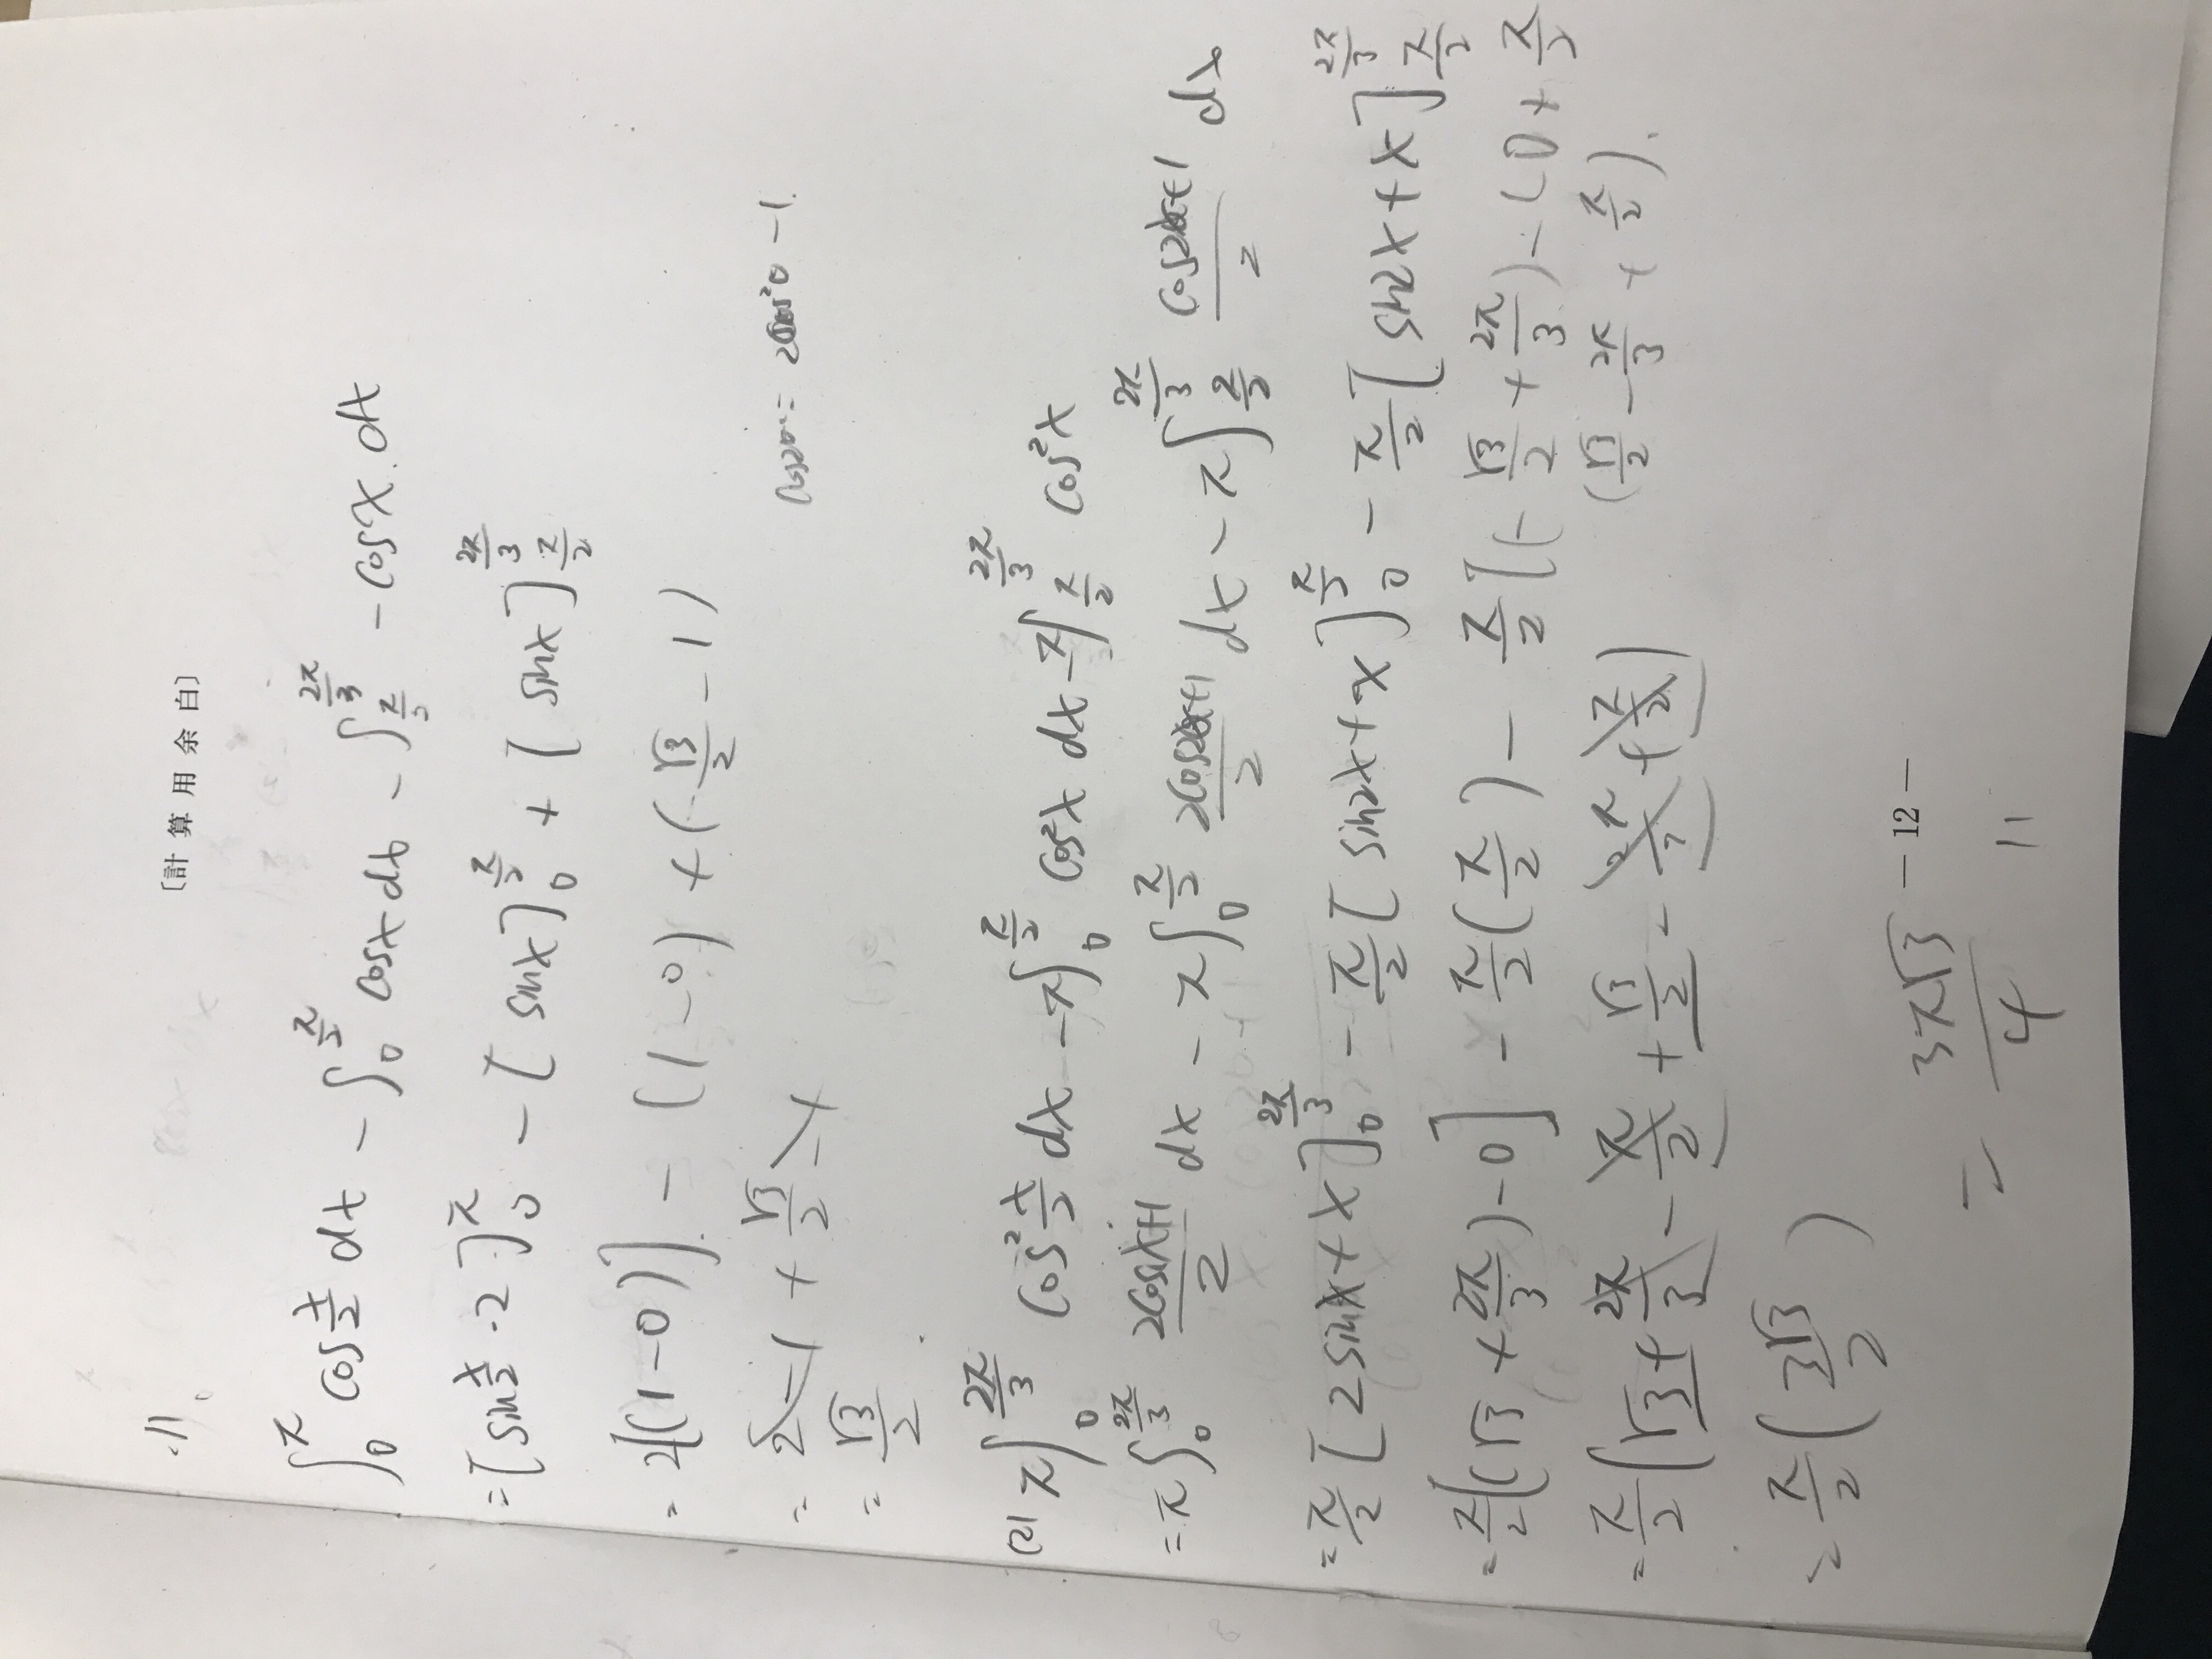 〔計算用余白〕
∫_0^π cos x/2 dx - ∫_0^{π/2} cosx dx - ∫_{π/2}^{2π/3} -cosx dx
= [sin x/2 ・2]_0^π - [sinx]_0^{π/2} + [sinx]_{π/2}^{2π/3}
= 2{(1-0)} - (1-0) + (√3/2 - 1)
= 2 - 1 + √3/2 - 1
= √3/2
cos2θ = 2cos²θ - 1
(2) π∫_0^{2π/3} cos² x/2 dx - π∫_0^{π/2} cos²x dx - π∫_{π/2}^{2π/3} cos²x
= π∫_0^{2π/3} 2cosx+1/2 dx - π∫_0^{π/2} 2cos2x+1/2 dx - π∫_{π/2}^{2π/3} cos2x+1/2 dx
= π/2 [2sinx + x]_0^{2π/3} - π/2 [sin2x + x]_0^{π/2} - π/2 [sin2x + x]_{π/2}^{2π/3}
= π/2 {(√3 + 2π/3) - 0} - π/2 (π/2) - π/2 {(-√3/2 + 2π/3) - (0 + π/2)
(√3/2 - 2π/3 + π/2).
= π/2 (√3 + 2π/3 - π/2 + √3/2 - 2π/3 + π/2)
= π/2 (3√3/2)
= 3π√3/4
-12-